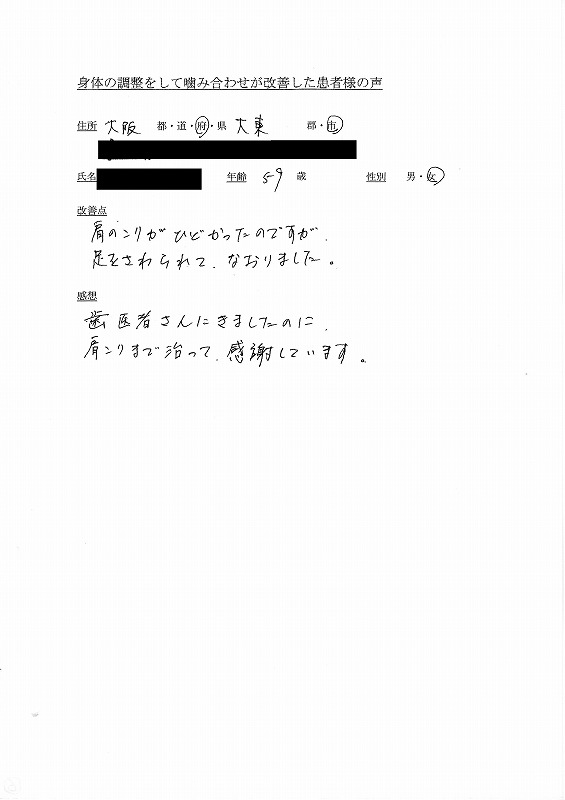 身体の調整をして噛み合わせが改善した患者様の声
住所 大阪 都・道・府・県 大東 郡・市
氏名 年齢 59 歳 性別 男・女
改善点
肩のこりがひどかったのですが、
足をさわられて、なおりました。
感想
歯医者さんにきましたのに、
肩こりまで治って、感謝しています。